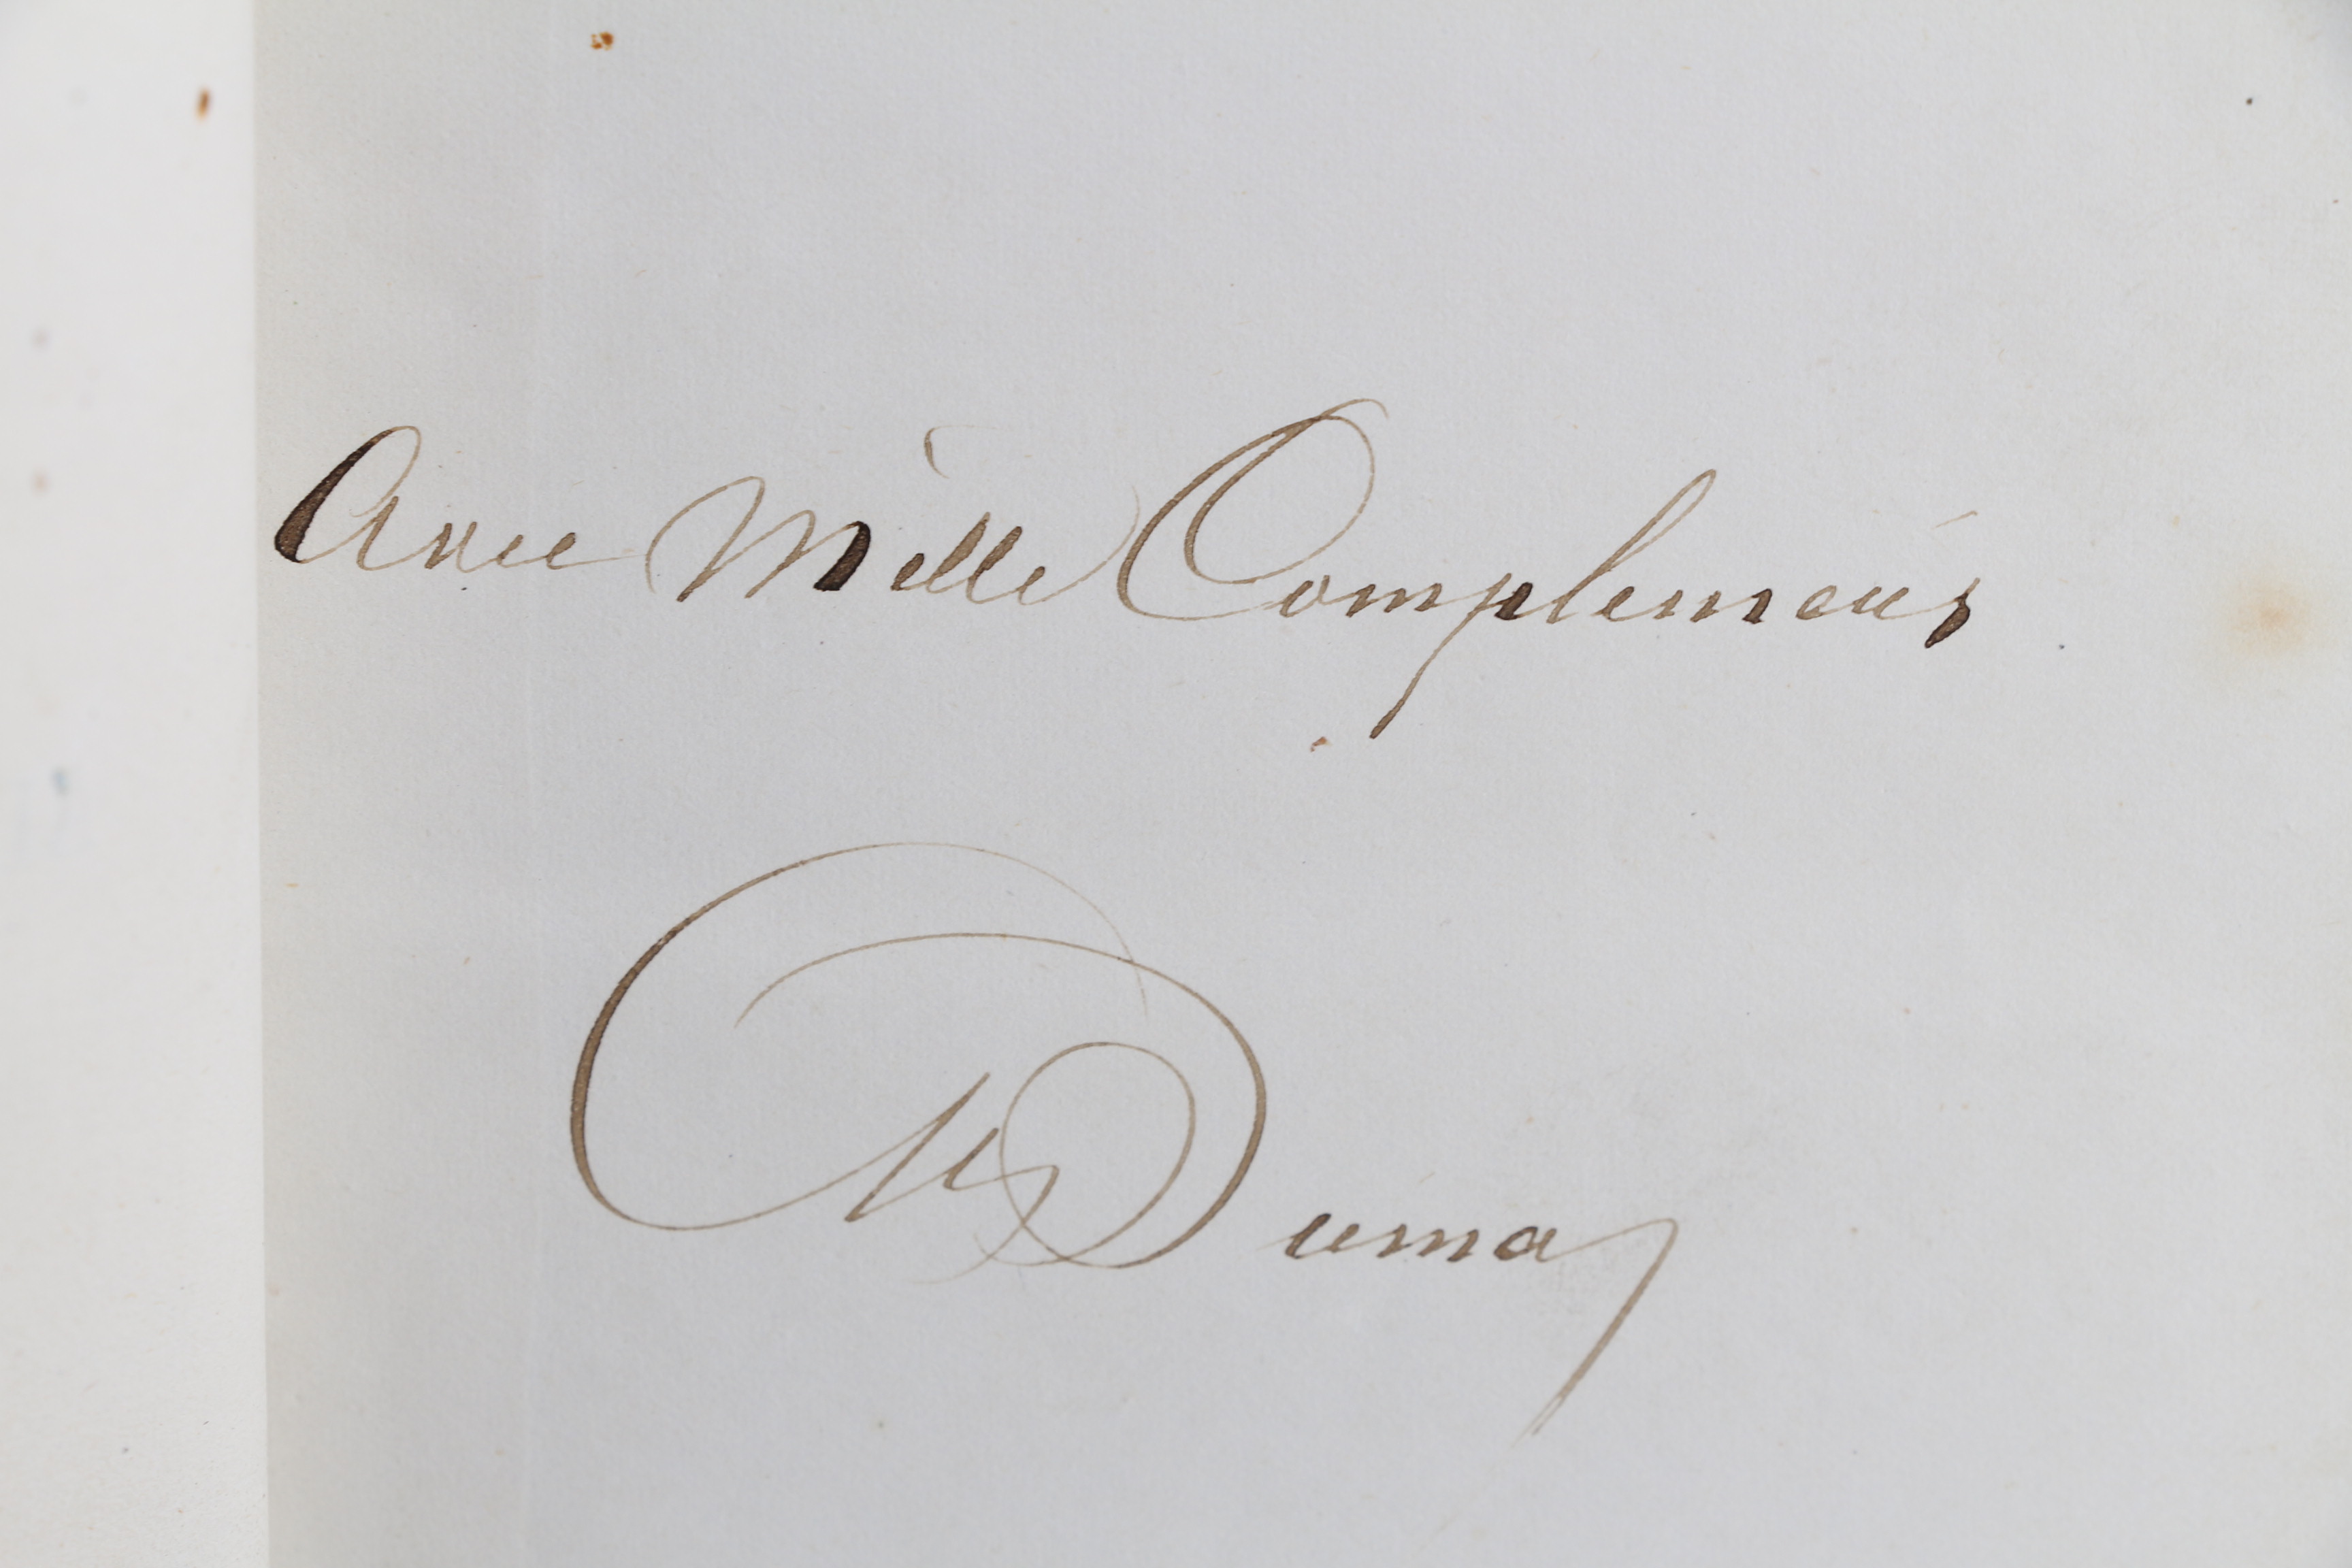 Avec Mille Complements
Al Dumas